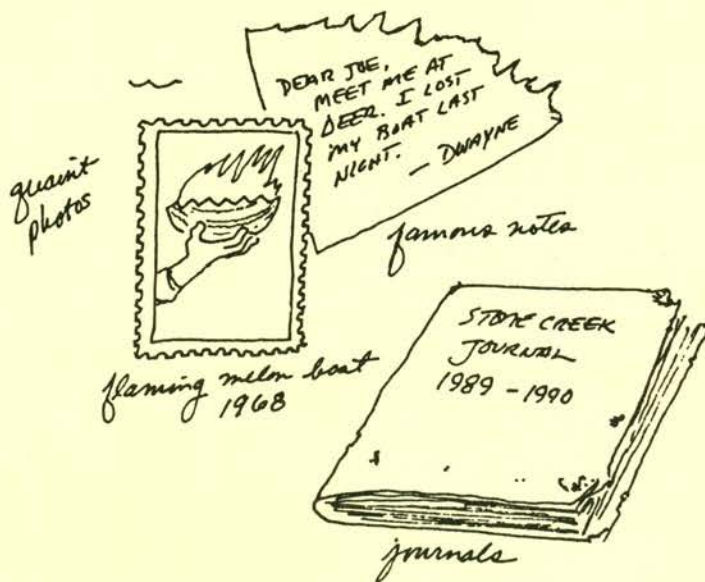 DEAR JOE,
MEET ME AT
DEER. I LOST
MY BOAT LAST
NIGHT.
— DWAYNE
quaint
photos
famous notes
flaming melon boat
1968
STONE CREEK
JOURNAL
1989 - 1990
journals